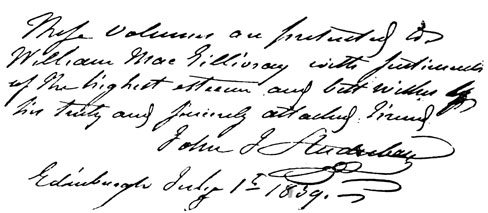 These volumes are presented to
William Mac Gillivray with sentiments
of the highest esteem and best wishes by
his truly and sincerely attached friend
John J Audubon
Edinburgh July 1st 1839.